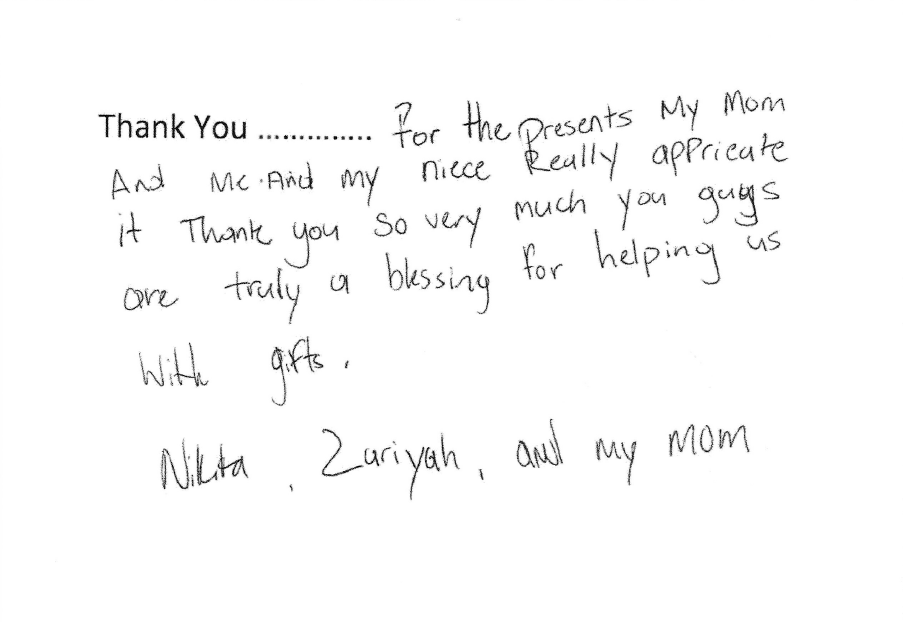 Thank You .............. For the presents My Mom
And Me. And my niece Really appricate
it Thank you so very much you guys
are truly a blessing for helping us
With gifts.
Nikita, Zuriyah, and my mom